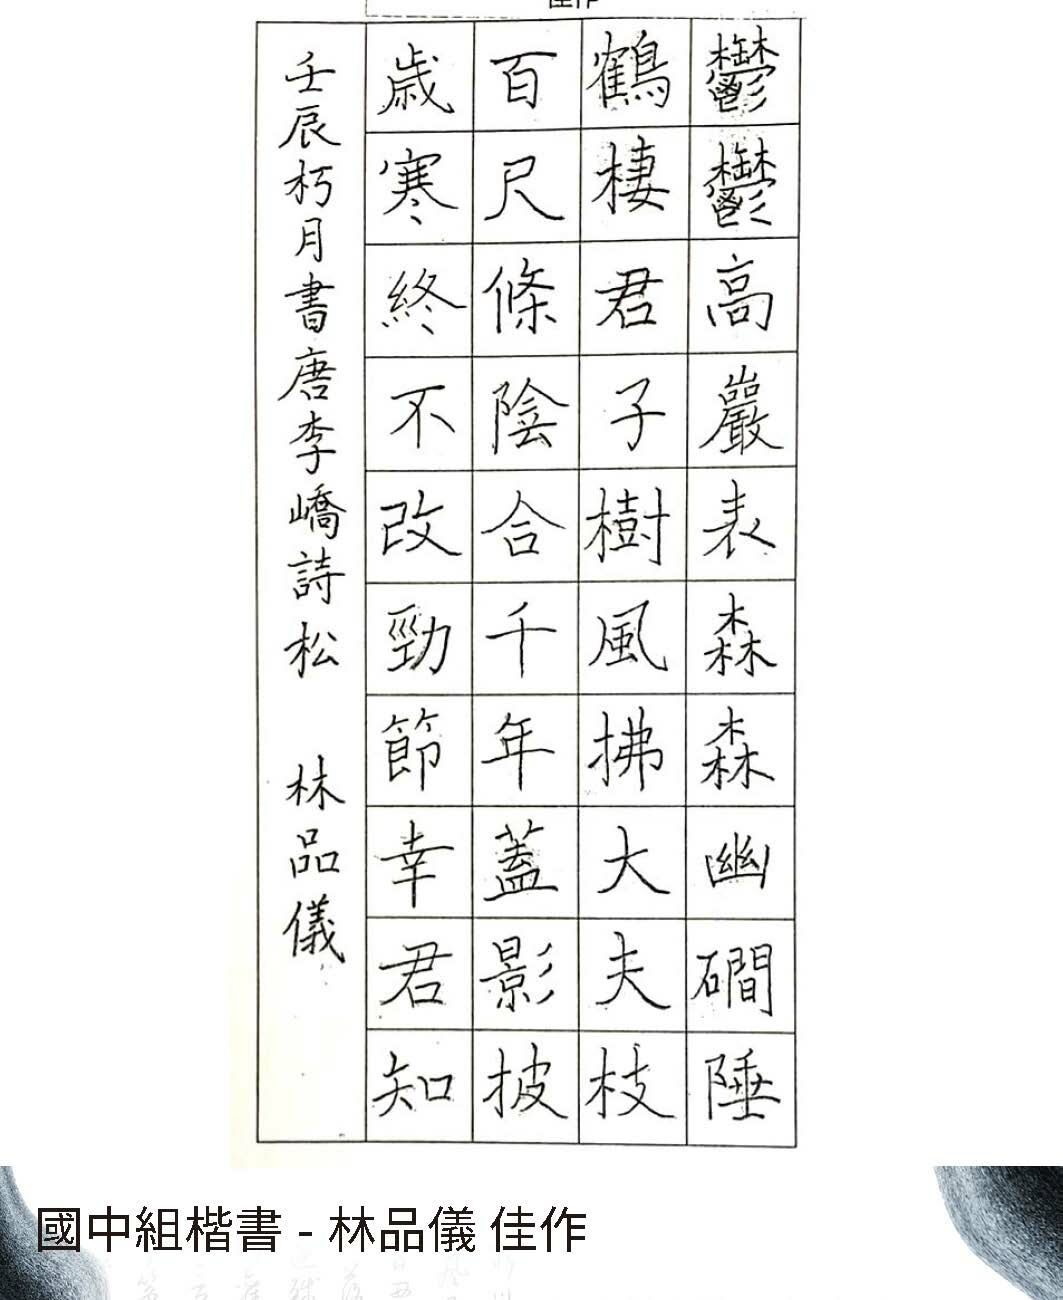 佳作
鬱鬱高巖表森森幽磵陲
鶴棲君子樹風拂大夫枝
百尺條陰合千年蓋影披
歲寒終不改勁節幸君知
壬辰朽月書唐李嶠詩松 林品儀
國中組楷書 - 林品儀 佳作